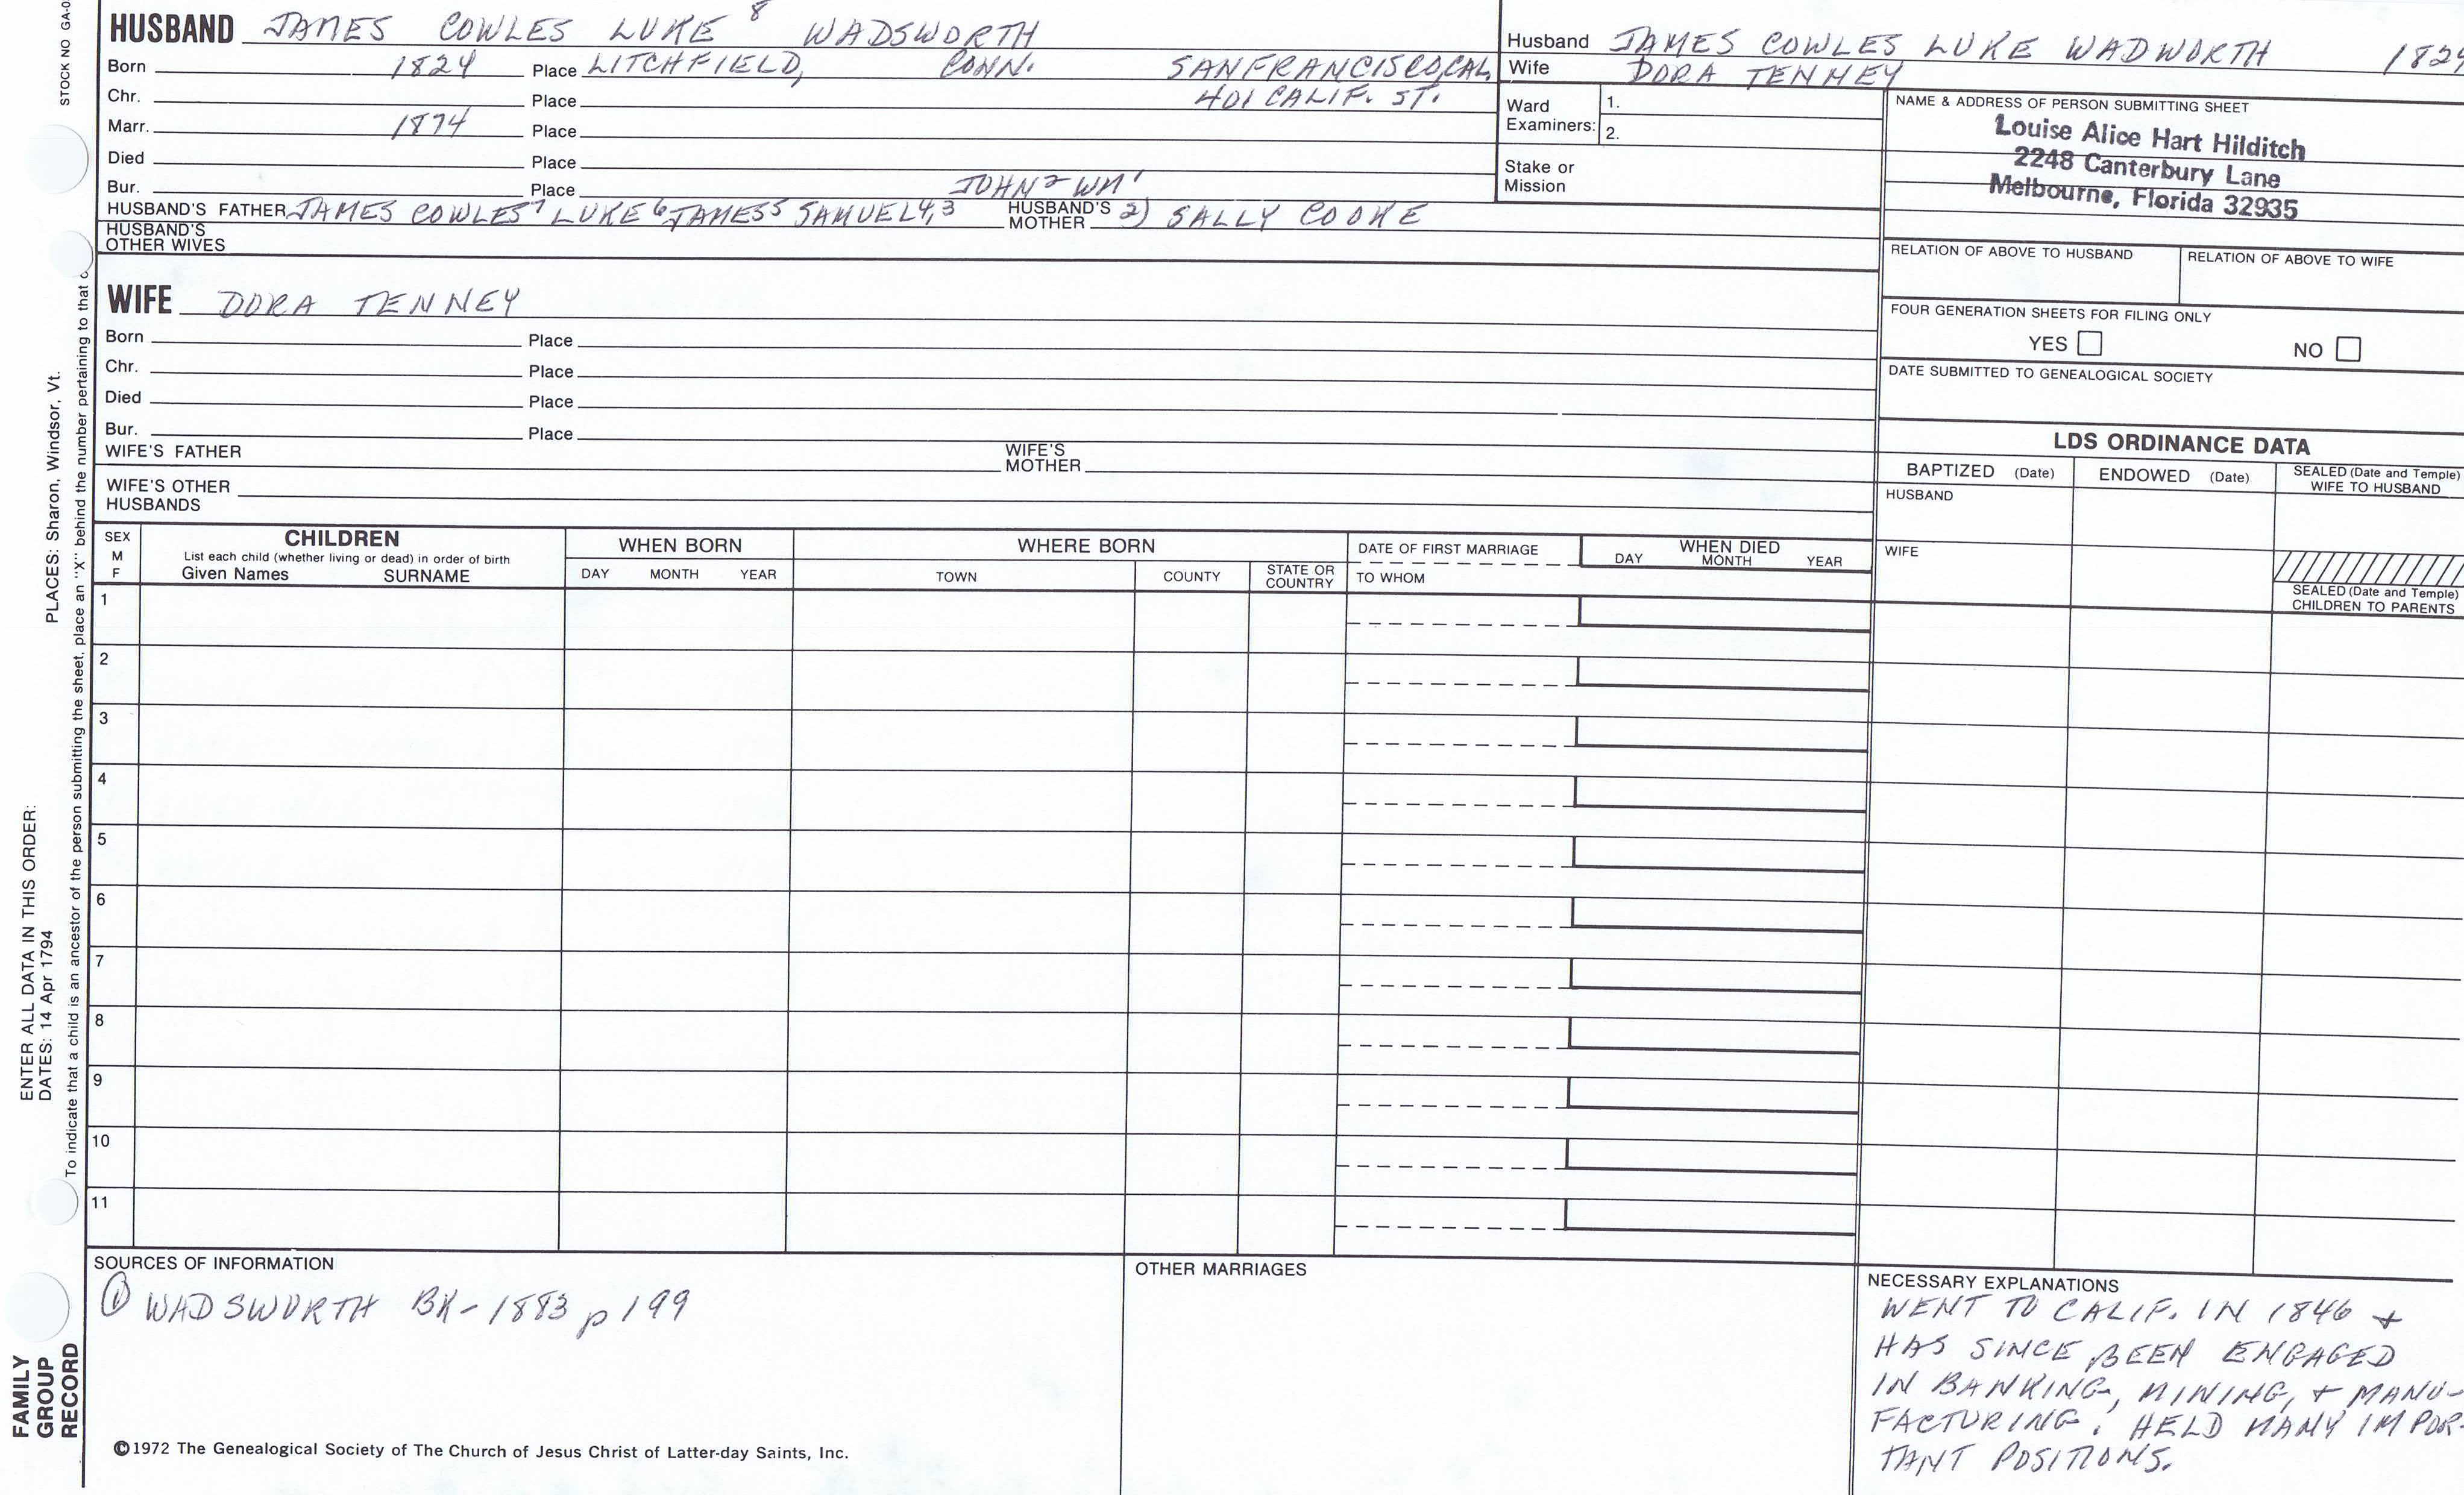 STOCK NO GA-0
HUSBAND JAMES COWLES LUKE 8 WADSWORTH
Born 1824 Place LITCHFIELD, CONN. SAN FRANCISCO, CAL
Chr. Place 401 CALIF. ST.
Marr. 1874 Place
Died Place
Bur. Place JOHN 2 WM 1
HUSBAND'S FATHER JAMES COWLES 7 LUKE 6 JAMES 5 SAMUEL 4,3 HUSBAND'S MOTHER 2) SALLY COOKE
HUSBAND'S
OTHER WIVES
WIFE DORA TENNEY
Born Place
Chr. Place
Died Place
Bur. Place
WIFE'S FATHER WIFE'S MOTHER
WIFE'S OTHER
HUSBANDS
Husband JAMES COWLES LUKE WADWORTH 1824
Wife DORA TENNEY
Ward Examiners: 1.
2.
Stake or
Mission
NAME & ADDRESS OF PERSON SUBMITTING SHEET
Louise Alice Hart Hilditch
2248 Canterbury Lane
Melbourne, Florida 32935
RELATION OF ABOVE TO HUSBAND RELATION OF ABOVE TO WIFE
FOUR GENERATION SHEETS FOR FILING ONLY
YES NO
DATE SUBMITTED TO GENEALOGICAL SOCIETY
LDS ORDINANCE DATA
BAPTIZED (Date) ENDOWED (Date) SEALED (Date and Temple)
WIFE TO HUSBAND
HUSBAND
WIFE
SEALED (Date and Temple)
CHILDREN TO PARENTS
SEX
M
F
CHILDREN
List each child (whether living or dead) in order of birth
Given Names SURNAME
WHEN BORN
DAY MONTH YEAR
WHERE BORN
TOWN COUNTY STATE OR COUNTRY
DATE OF FIRST MARRIAGE
TO WHOM
WHEN DIED
DAY MONTH YEAR
1
2
3
4
5
6
7
8
9
10
11
SOURCES OF INFORMATION
① WADSWORTH BK-1883 p 199
OTHER MARRIAGES
NECESSARY EXPLANATIONS
WENT TO CALIF. IN 1846 +
HAS SINCE BEEN ENGAGED
IN BANKING, MINING, + MANU-
FACTURING. HELD MANY IMPOR-
TANT POSITIONS.
©1972 The Genealogical Society of The Church of Jesus Christ of Latter-day Saints, Inc.
ENTER ALL DATA IN THIS ORDER:
DATES: 14 Apr 1794 PLACES: Sharon, Windsor, Vt.
To indicate that a child is an ancestor of the person submitting the sheet, place an "X" behind the number pertaining to that c
FAMILY
GROUP
RECORD